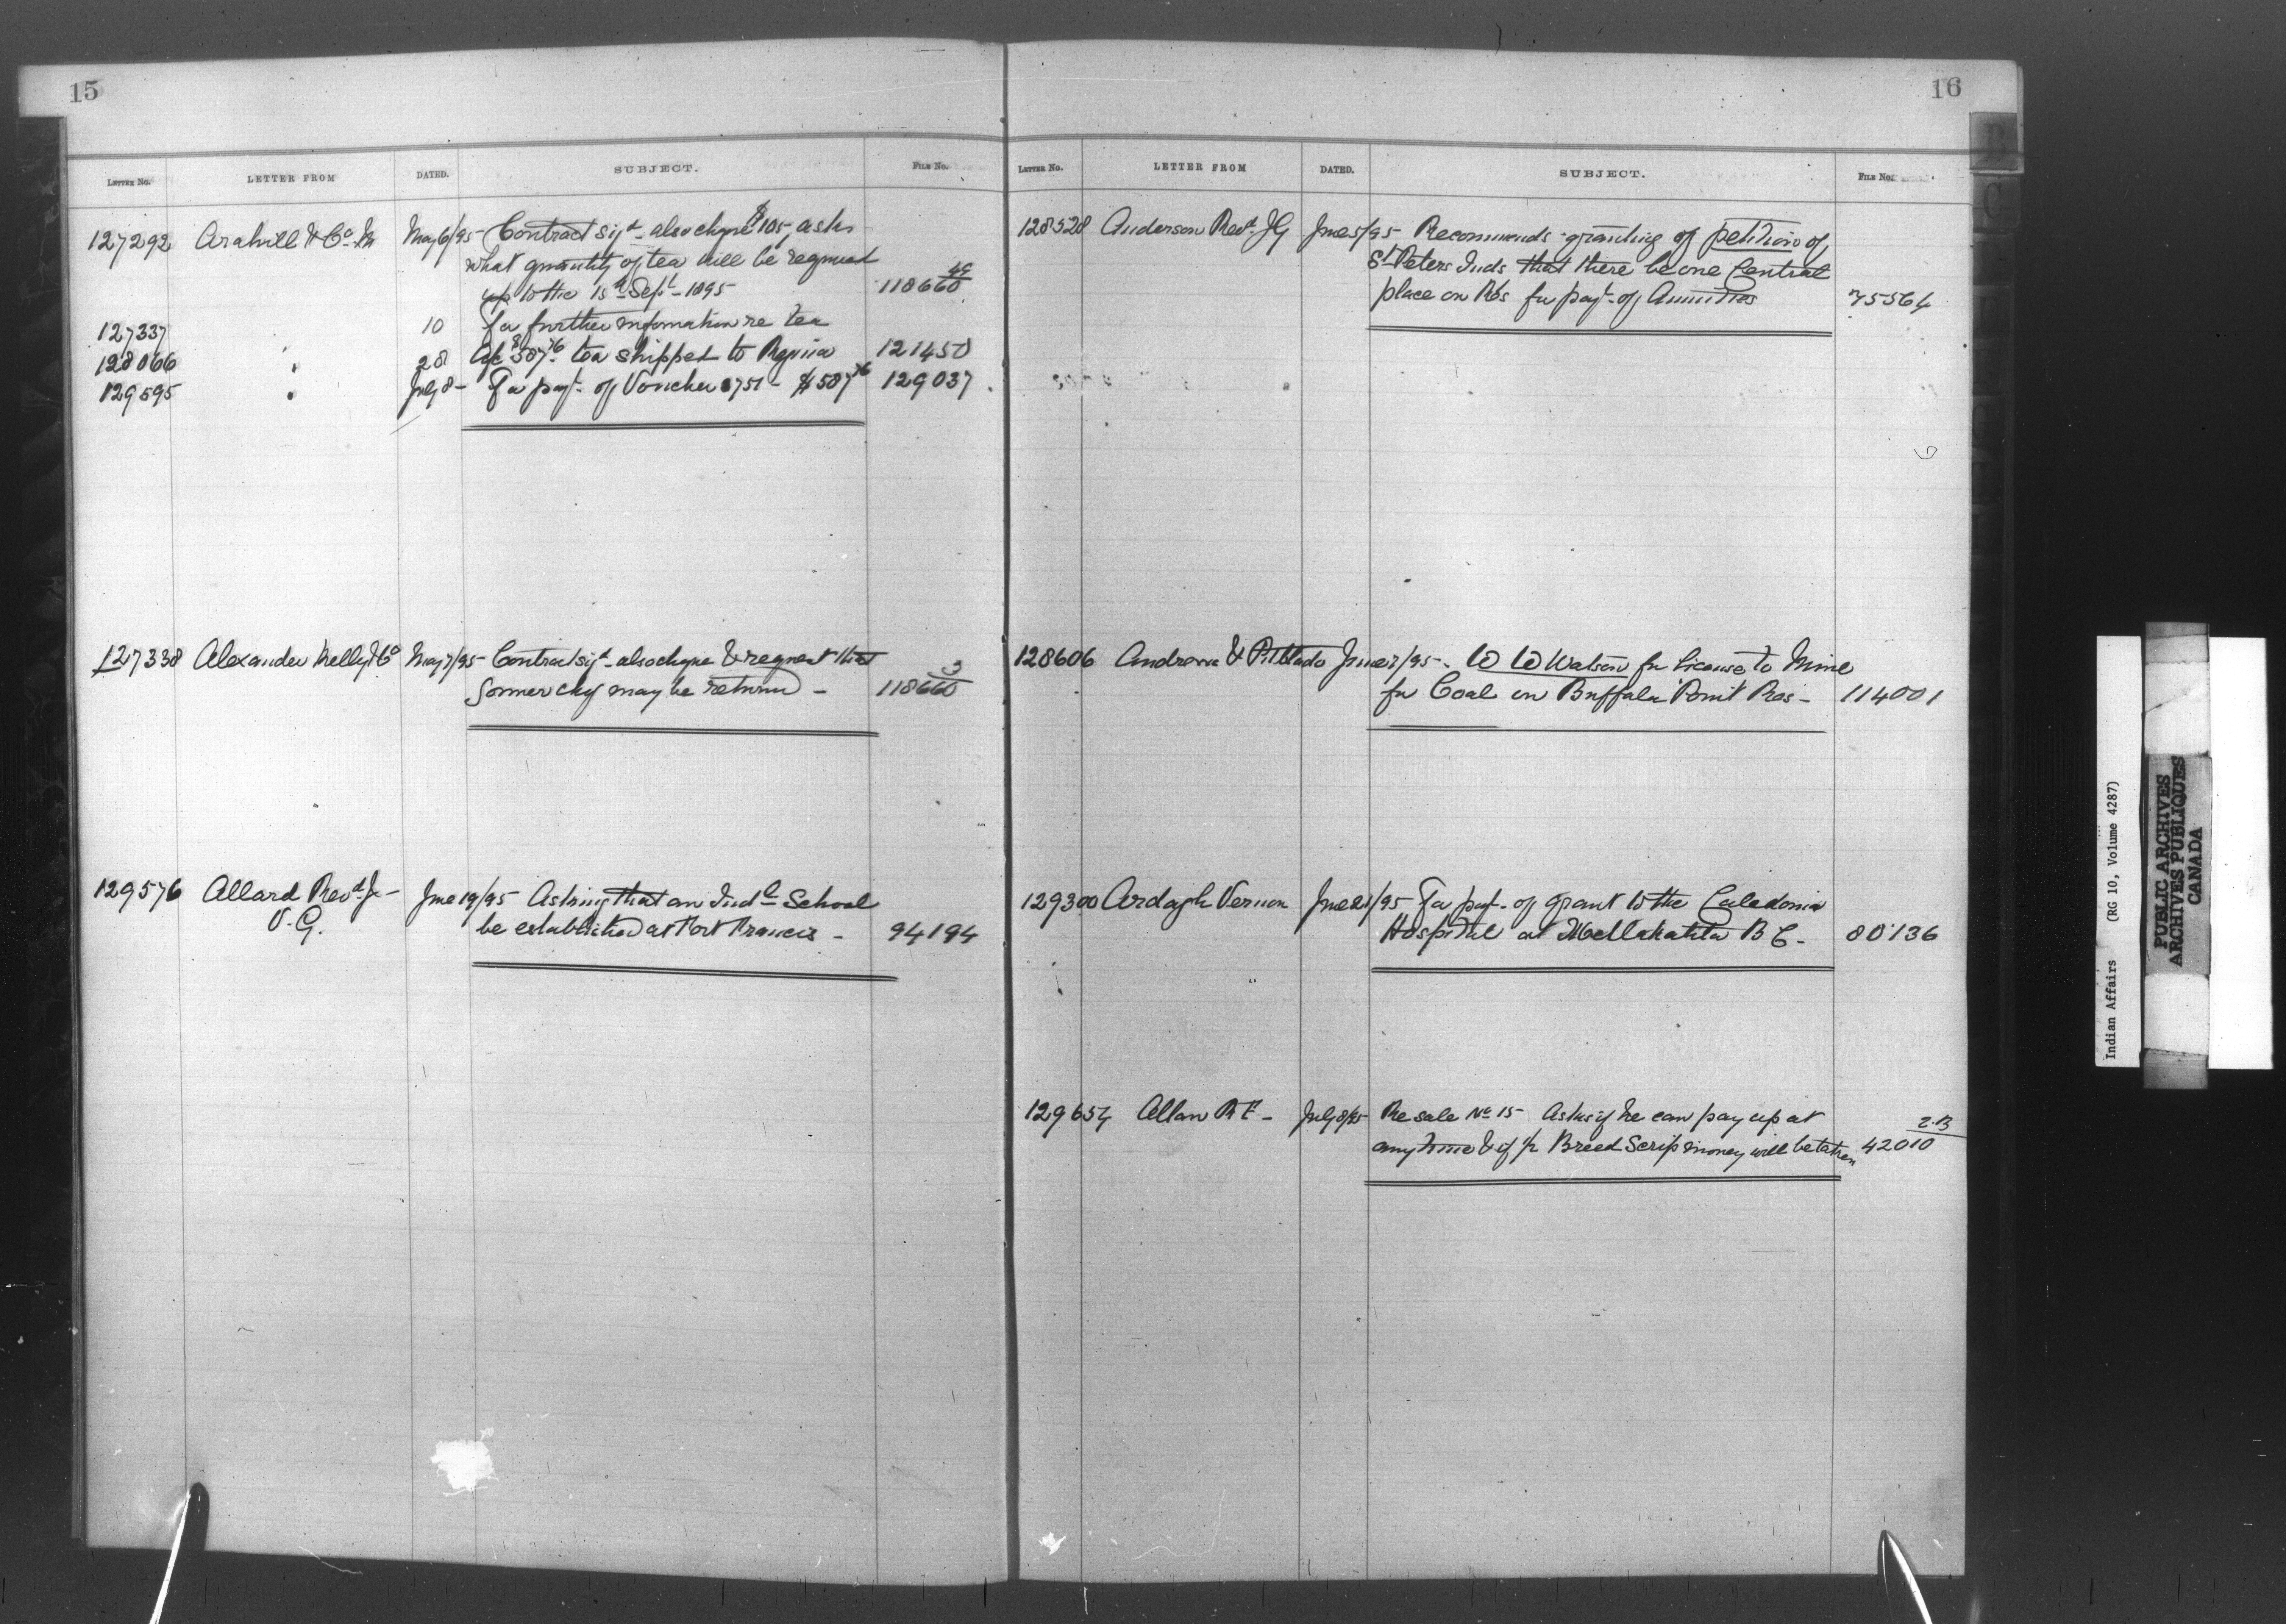 15
LETTER No. LETTER FROM DATED. SUBJECT. FILE No.
127292 May 6/95 Contract sigd - also cheque $105 - asks
what quantity of tea will be required
up to the 15th Septr - 1895 118660 49
127337 " 10 For further information re tea
128066 " 28 a/c $587.76 tea shipped to Regina 121450
129595 " July 8 - For payt of Voucher 8751 - $587.76 129037
127338 Alexander Kelly & Co May 7/95 - Contract sigd - also cheque & request that
former chq may be returned - 118660 3
129576 Allard Revd J - June 19/95 Asking that an Indl School
V. G. be established at Fort Francis - 94194
16
LETTER No. LETTER FROM DATED. SUBJECT. FILE No.
128528 Anderson Revd J G June 5/95 - Recommends granting of petition of
St Peters Inds that there be one Central
place on Res for payt of Annuities 75564
128606 Andrews & Pitblado June 7/95 - W W Watson for license to Mine
for Coal on Buffalo Point Res - 114001
129300 Ardagh Vernon June 21/95 For payt of grant to the Caledonia
Hospital at Metlakahtla B C - 80136
129654 Allan R F - July 8/95 - Re sale No 15 - Asks if he can pay up at
any time & if ½ Breed Scrip money will be taken 42010 2.B
Indian Affairs (RG 10, Volume 4287)
PUBLIC ARCHIVES
ARCHIVES PUBLIQUES
CANADA